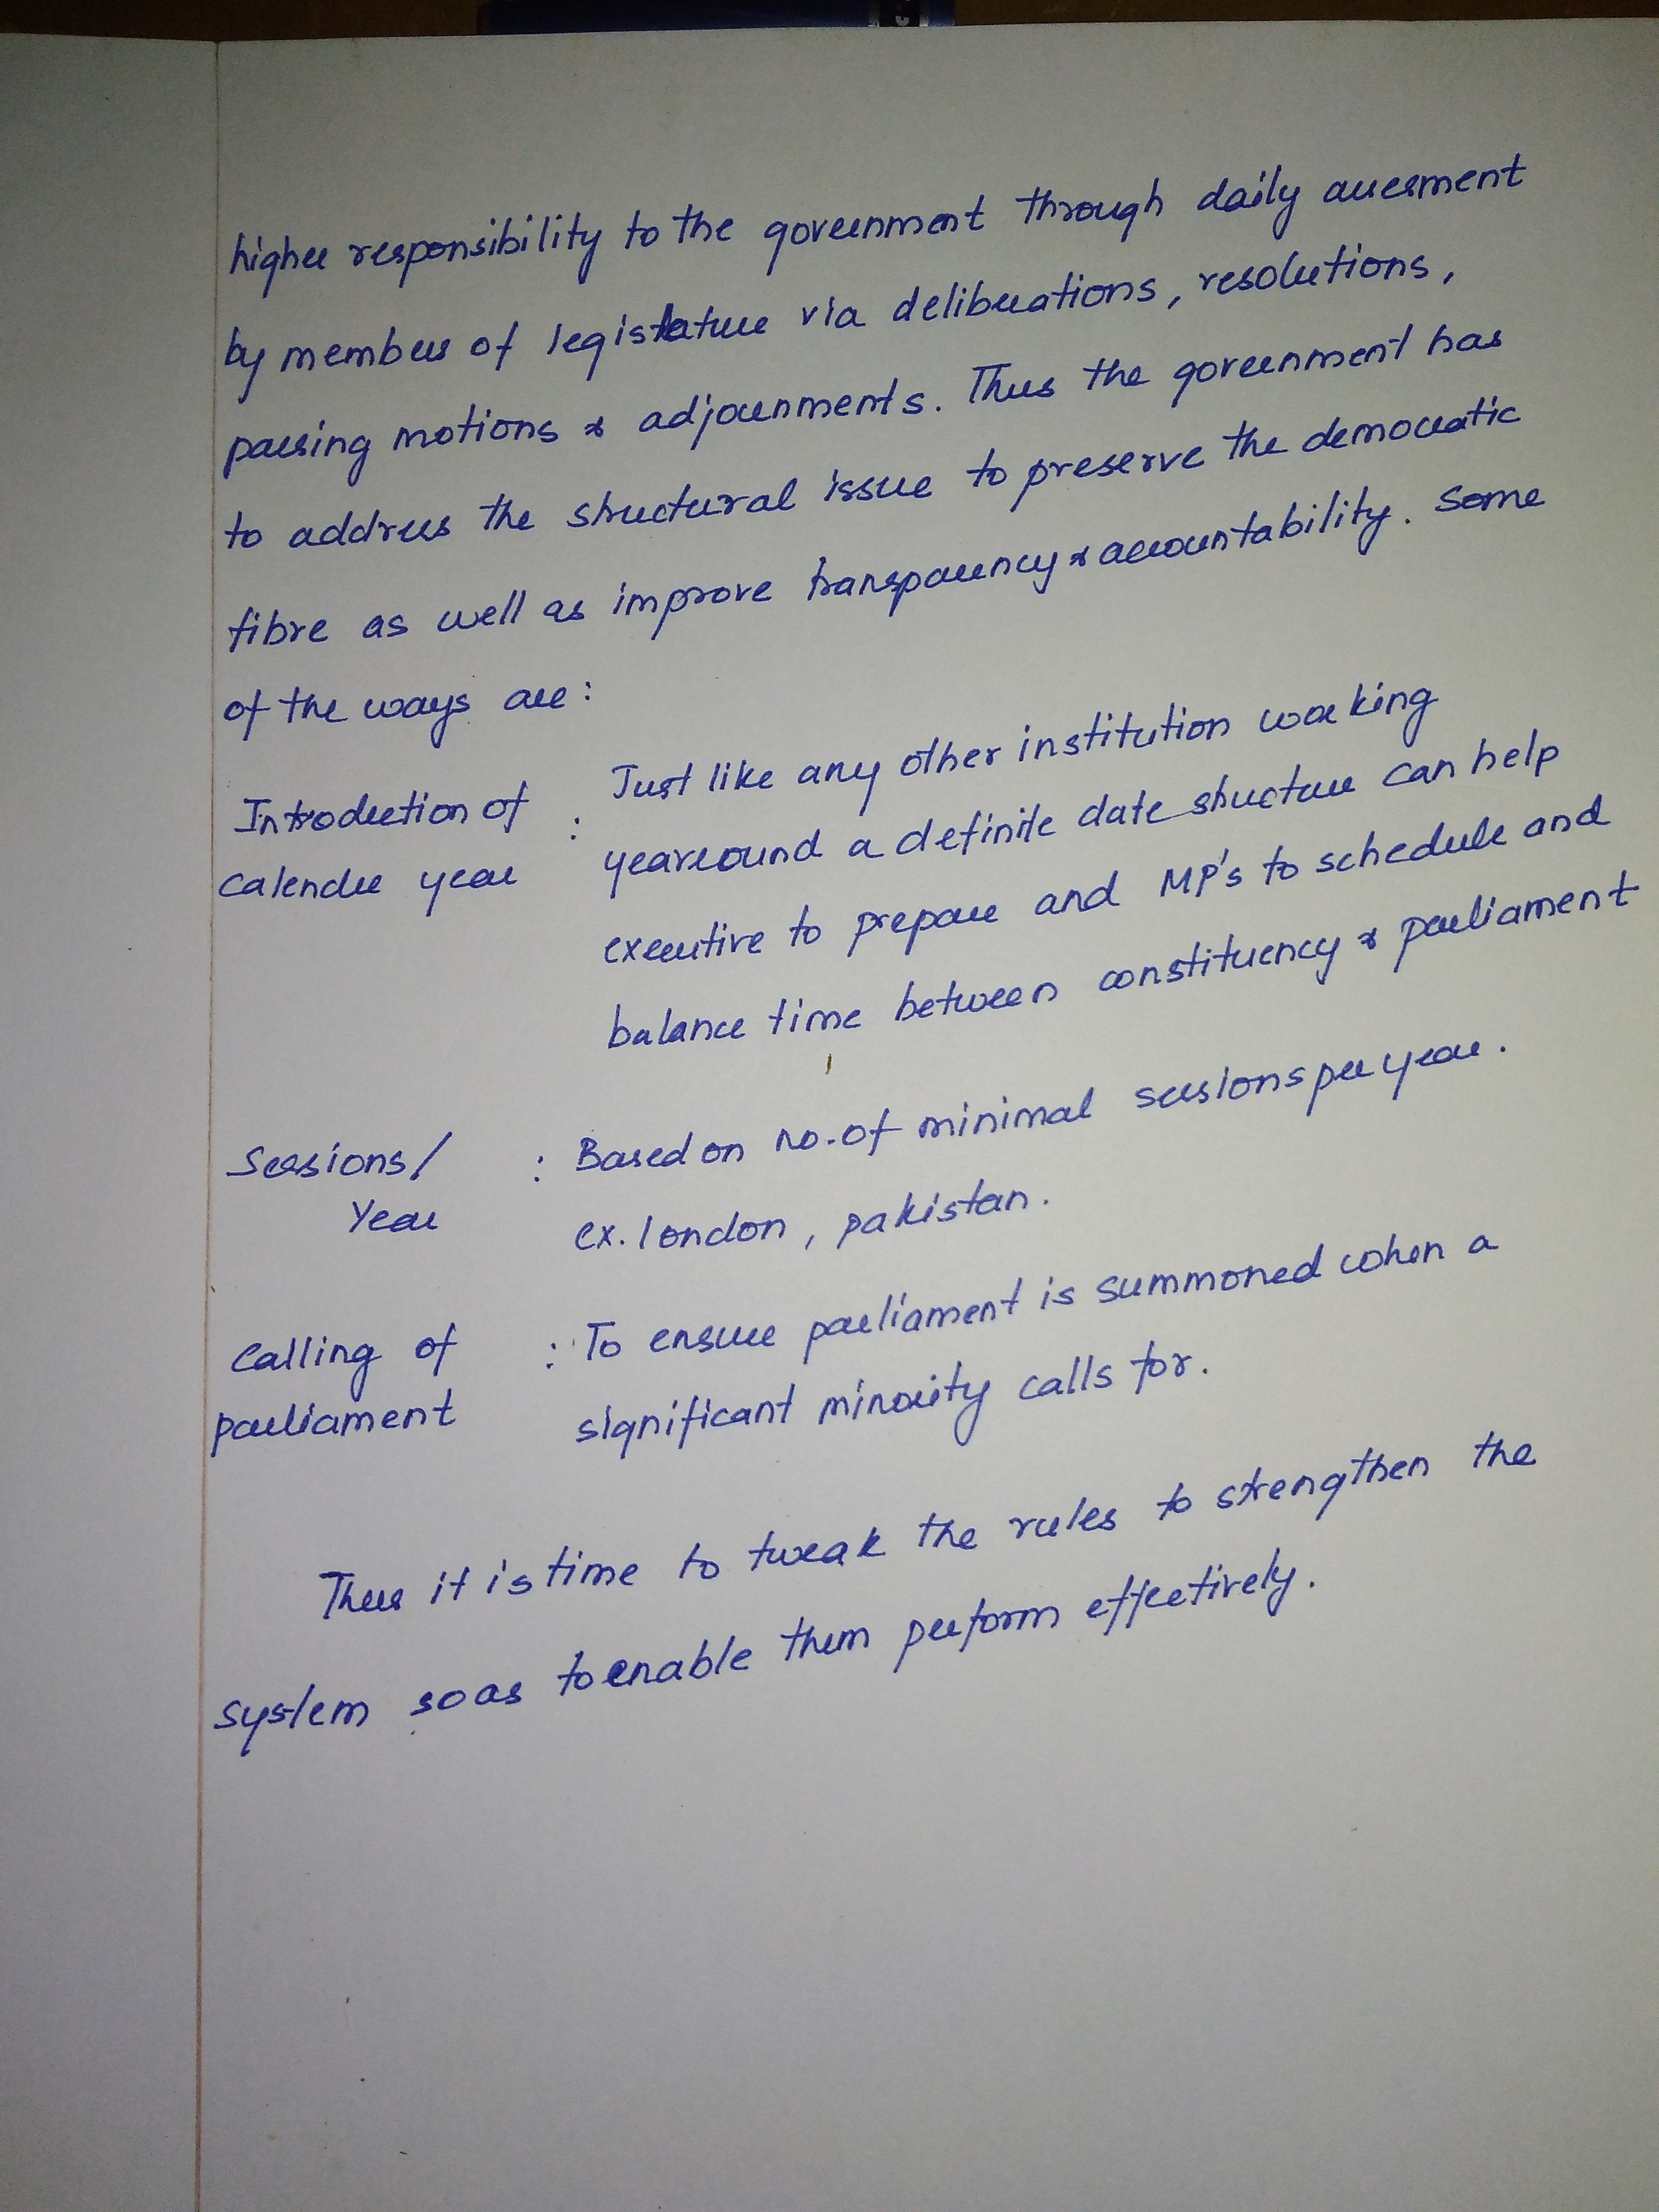 higher responsibility to the government through daily assesment
by members of legislature via deliberations, resolutions,
passing motions & adjournments. Thus the government has
to address the structural issue to preserve the democratic
fibre as well as improve transparency & accountability. Some
of the ways are:
Introduction of calender year : Just like any other institution working
yearround a definite date structure can help
executive to prepare and MP's to schedule and
balance time between constituency & parliament
Sessions/ Year : Based on no. of minimal sessions per year.
ex. london, pakistan.
Calling of parliament : To ensure parliament is summoned when a
significant minority calls for.
Thus it is time to tweak the rules to strengthen the
system so as to enable them perform effectively.